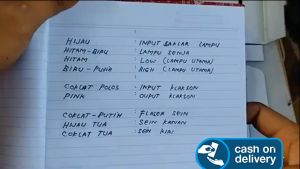 HIJAU : INPUT SAKLAR LAMPU
HITAM-BIRU : LAMPU SENJA
HITAM : LOW (LAMPU UTAMA)
BIRU-PUTIH : HIGH (LAMPU UTAMA)
COKLAT POLOS : INPUT KLAKSON
PINK : OUPUT KLAKSON
COKLAT-PUTIH : FLASER SEIN
HIJAU TUA : SEIN KANAN
COKLAT TUA : SEIN KIRI
cash on
delivery